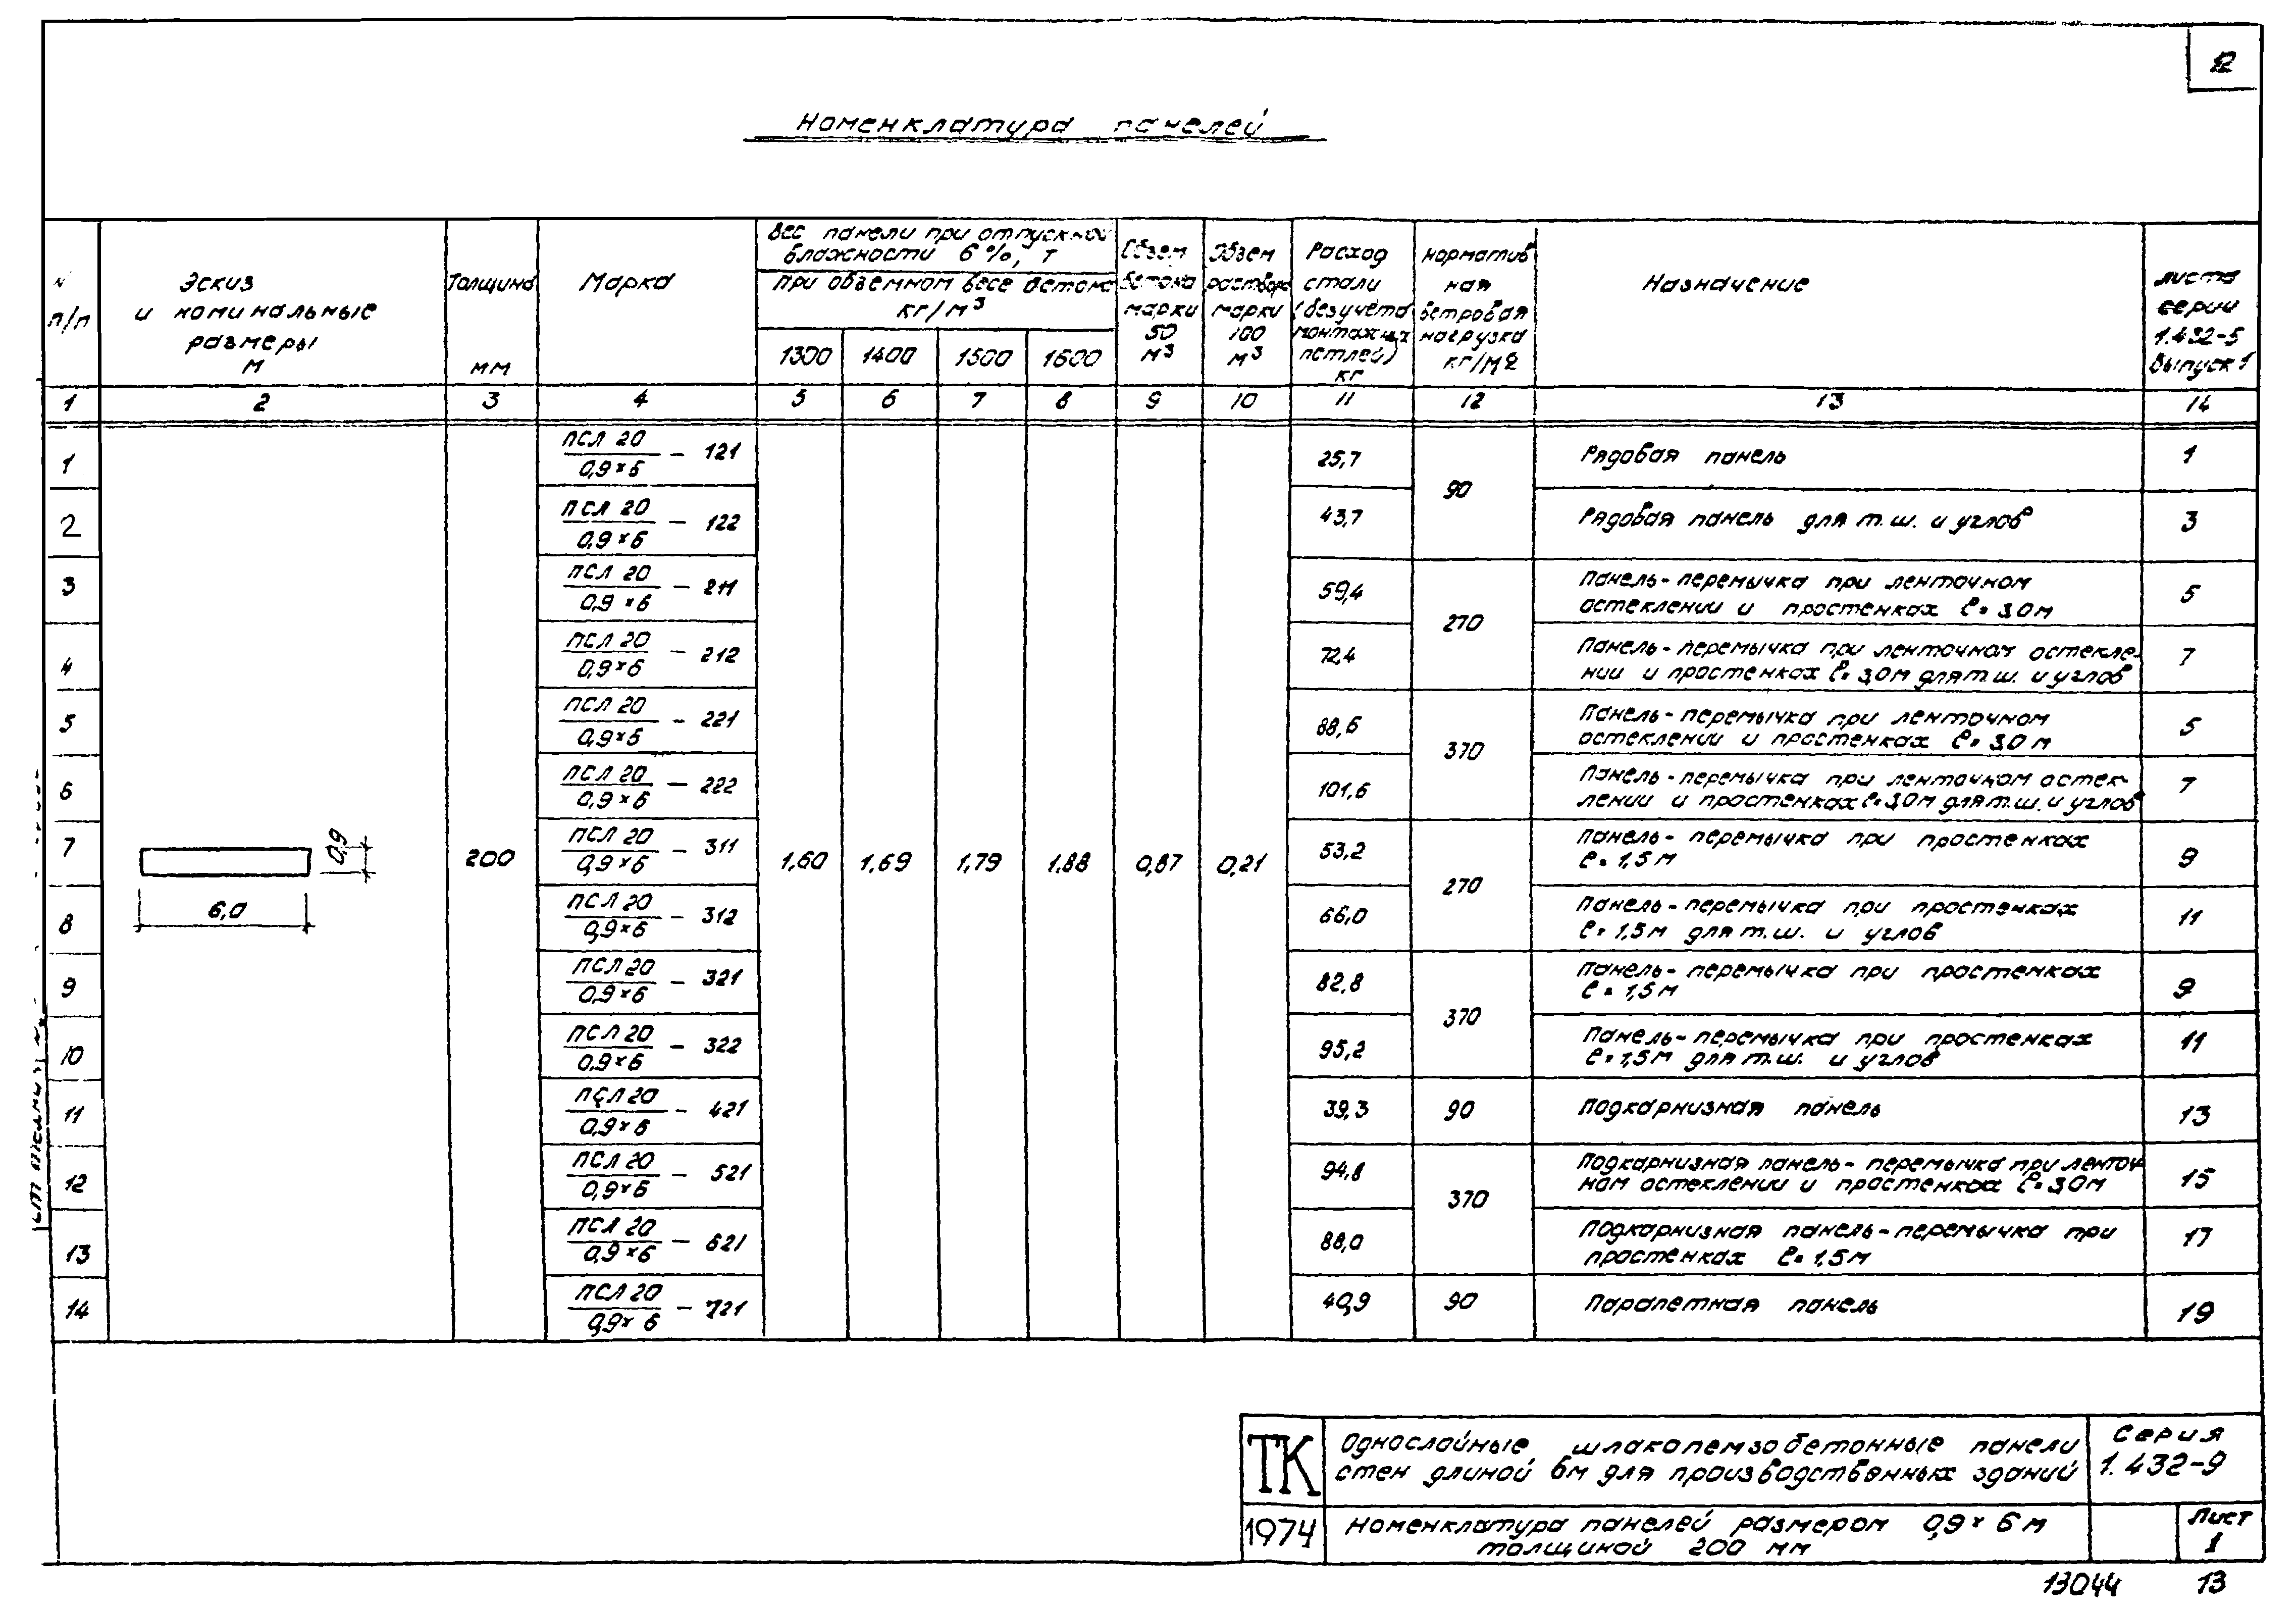 12
Номенклатура панелей
N п/п
Эскиз и номинальные размеры м
Толщина мм
Марка
Вес панели при отпускной влажности 6%, т
при объемном весе бетона кг/м3
1300 1400 1500 1600
Объем бетона марки 50 м3
Объем раствора марки 100 м3
Расход стали (без учета монтажных петлей) кг
Нормативная ветровая нагрузка кг/м2
Назначение
Листа серии 1.432-5 Выпуск 1
1 2 3 4 5 6 7 8 9 10 11 12 13 14
1 ПСЛ 20/0,9×6 - 121 25,7 90 Рядовая панель 1
2 ПСЛ 20/0,9×6 - 122 43,7 Рядовая панель для т.ш. и углов 3
3 ПСЛ 20/0,9×6 - 211 59,4 270 Панель-перемычка при ленточном
остеклении и простенках ℓ=3,0м 5
4 ПСЛ 20/0,9×6 - 212 72,4 Панель-перемычка при ленточном остекле-
нии и простенках ℓ=3,0м для т.ш. и углов 7
5 ПСЛ 20/0,9×6 - 221 88,6 370 Панель-перемычка при ленточном
остеклении и простенках ℓ=3,0м 5
6 ПСЛ 20/0,9×6 - 222 101,6 Панель-перемычка при ленточном остек-
лении и простенках ℓ=3,0м для т.ш. и углов 7
7 0,9 200 ПСЛ 20/0,9×6 - 311 1,60 1,69 1,79 1,88 0,87 0,21 53,2 270 Панель-перемычка при простенках
ℓ=1,5м 9
6,0
8 ПСЛ 20/0,9×6 - 312 66,0 Панель-перемычка при простенках
ℓ=1,5м для т.ш. и углов 11
9 ПСЛ 20/0,9×6 - 321 82,8 370 Панель-перемычка при простенках
ℓ=1,5м 9
10 ПСЛ 20/0,9×6 - 322 95,2 Панель-перемычка при простенках
ℓ=1,5м для т.ш. и углов 11
11 ПСЛ 20/0,9×6 - 421 39,3 90 Подкарнизная панель 13
12 ПСЛ 20/0,9×6 - 521 94,8 370 Подкарнизная панель-перемычка при ленточ
ном остеклении и простенках ℓ=3,0м 15
13 ПСЛ 20/0,9×6 - 621 88,0 Подкарнизная панель-перемычка при
простенках ℓ=1,5м 17
14 ПСЛ 20/0,9×6 - 721 40,9 90 Парапетная панель 19
ТК
Однослойные шлакопемзобетонные панели
стен длиной 6м для производственных зданий
Серия
1.432-9
1974
Номенклатура панелей размером 0,9×6м
толщиной 200 мм
Лист
1
13044 13